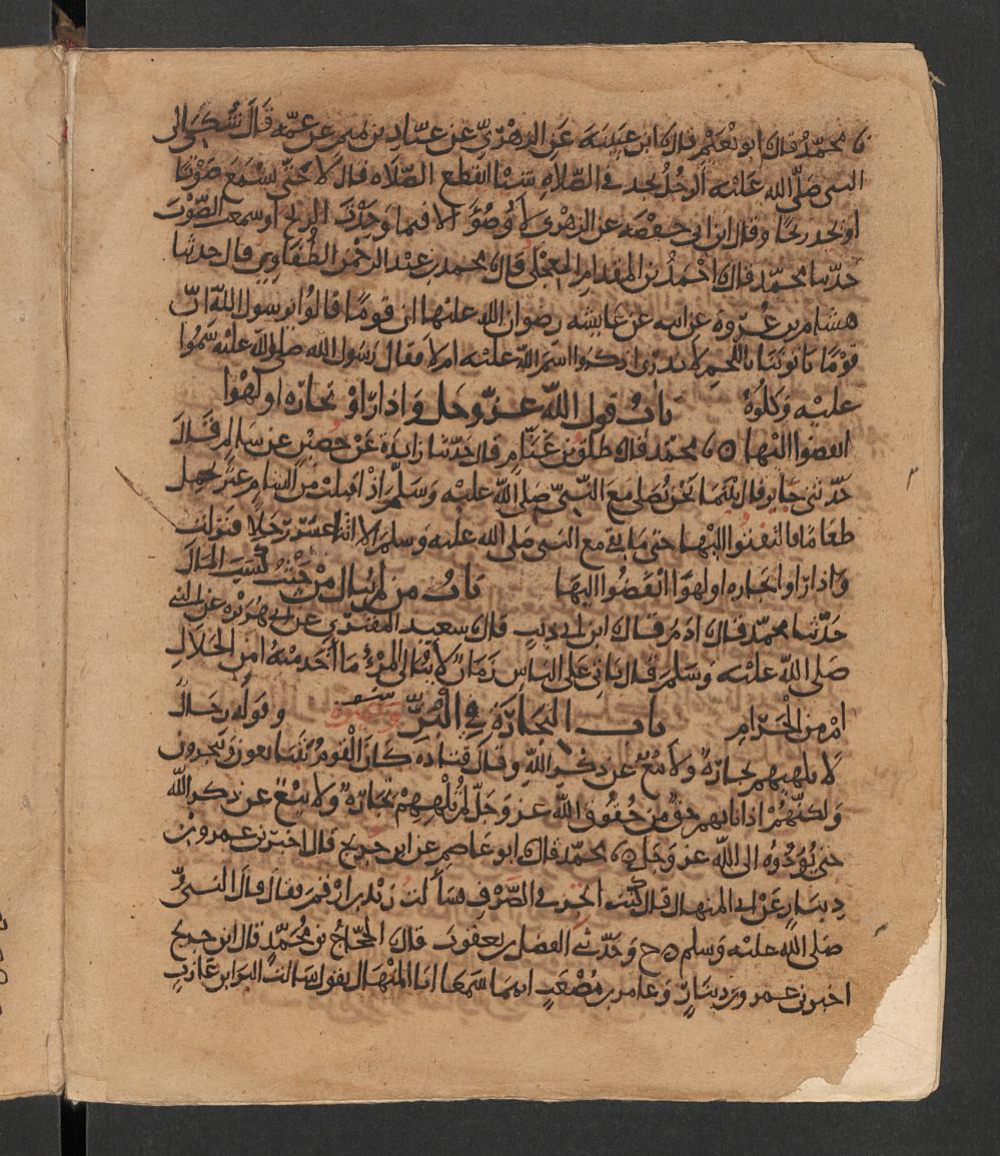 نا محمّد قال نا ابو نُعَيْم قال نا ابن عيينة عَنِ الزهْرِيِّ عن عبّاد بن تميم عن عمّه قَالَ شُكِيَ الى
النبى صَلَّى الله عَلَيْه الرجُلُ يجد في الصّلاةِ شَيْئا ايقطع الصّلَاه قال لَا حَتّى يَسْمَعَ صَوْتا
او يجد ريحًا وقال ابن ابى حفصَه عن الزهْرى لَا وُضُوَّ الّا فيما وَجَدْتَ الريح او سمعت الصَّوْتَ
حدّثنا محمّد قال نا احْمَدُ بن المقدامِ العِجْلى قال نا محمد بن عبْد الرحْمن الطُّفَاوِيّ قال حدثنا
هشام بن عُرْوة عن ابيه عن عايشه رضوان الله عليْها ان قومًا قالوا يرسول اللّهِ انّ
قوْمًا ياتوننَا باللّحم لا ندْرى اذكروا اسمَ اللّه عليْه ام لا فقال رَسُول الله صلى اللّه علَيْه سَمُّوا
عليْه وَكلُوهُ باب قول اللّه عزّ وجل وَاذا راَوْ تجارَه او لَهْوا
انفضوا اليْها ۝ نا محمّد قال نا طلْق بن غَنَّامٍ قال حَدّثنا زايدَة عَنْ حُصَيْنٍ عن سَالِم قال
حَدّثنى جابر قال بيْنَمَا نحْنُ نُصَلى مَع النَّبىِّ صَلى اللّه عليْه وَسَلَّم اذْ اقبلتْ منَ الشام عيرٌ تحمِل
طعَامًا فالتفتُوا اليْهَا حتى مَا بقي مع النبى صَلى الله عليْه وسلم الا اثنا عشرَ رَجلًا فنزلت
وَاذا راَوا تجاره او لهوًا انفَضُوا اليهَا باب من لم يُبالِ مِنْ حَيْثُ كسَبَ المَالَ
حَدّثنا محمّد قال نا ادمُ قال نا ابن ابى ذيبٍ قال نا سعيد المقبُرِي عن ابى هُرَيْرَه عن النبى
صَلى اللّه علَيْه وَسَلم قال يَاتى عَلى النّاسِ زَمَانٌ لا يُبَالى المرْءُ مَا أخَذ منْهُ امن الحَلالِ
امْ من الْحَرَامِ باب التجَارَةِ فِى الْبَرِّ وغيْره وقوله رجالٌ
لَا تلهيهم تجارَةٌ ولا بَيْعٌ عن ذِكرِ اللّهِ وقال قتاده كانَ الْقومُ يَتَبَايعون وَيتجرون
وَلكنّهُمْ اذا نابهم حقٌّ من حُقُوقِ اللّه عز وَجَلّ لَمْ تلْهِهِمْ تجَارَةٌ وَلا بَيْعٌ عن ذكر اللّه
حتى يُؤَدُّوهُ الى اللّه عز وَجَل ۝ نا محمّد قال نا ابو عاصِمٍ عن ابن جريج قال اخبرنى عمرو بن
دِينَارٍ عَنْ ابى المنهال قال كنت اتجر فى الصّرْفِ فسَألت زيْد بن ارْقم فقال قال النّبىُّ
صَلى اللّه عليْه وَسلم ۝ ح وَحَدّثنى الفضل بن يعقوب قال نا الحجّاج بن مُحمّدٍ قال ابن جريج
اخبرنى عمرو بن دينَارٍ وَعَامر بن مُصْعَبٍ انهمَا سَمعَا ابَا المنْهَال يقول سَالت البرَا بن عَازِبٍ